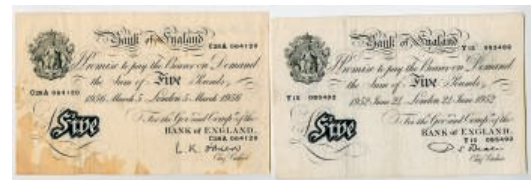 Bank of England
C28A 064129
I Promise to pay the Bearer on Demand
the Sum of Five Pounds
C28A 064129
1956 March 5 London 5 March 1956
For the Govr. and Compa. of the
BANK of ENGLAND.
C28A 064129
Five
L. K. O'Brien
Chief Cashier
Bank of England
I Promise to pay the Bearer on Demand
the Sum of Five Pounds
1952 June 21 London 21 June 1952
For the Govr. and Compa. of the
BANK of ENGLAND.
Five
Chief Cashier